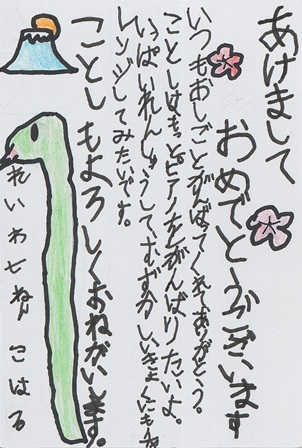 あけまして
おめでとうございます
いつもおしごとがんばってくれてありがとう。
ことしはもっとピアノをがんばりたいよ。
いっぱいれんしゅうしてむずかしいきょくにもチャ
レンジしてみたいです。
ことしもよろしくおねがいします。
れいわ七ねん こはる